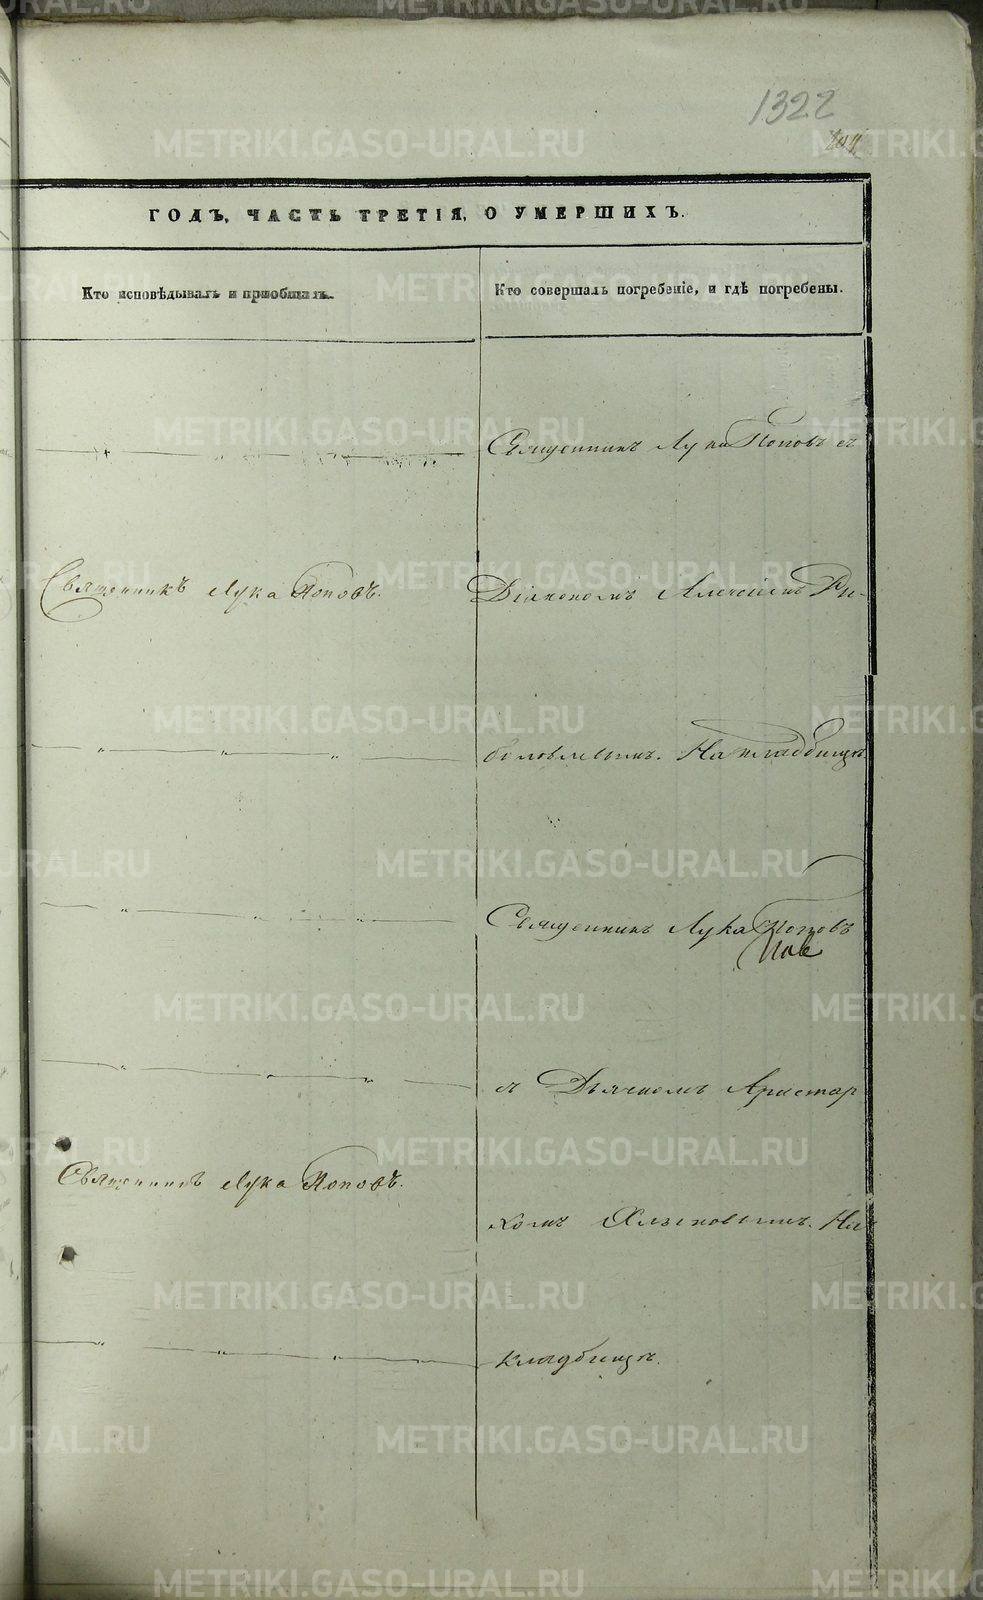 1322
ГОДЪ, ЧАСТЬ ТРЕТІЯ, О УМЕРШИХЪ.
Кто исповѣдывалъ и пріобщалъ.
Кто совершалъ погребеніе, и гдѣ погребены.
Священникъ Лука Поповъ съ
Священникъ Лука Поповъ.
Діакономъ Алексіемъ
На кладбищѣ
Священникъ Лука Поповъ
съ Дьячкомъ Аристар
Священникъ Лука Поповъ.
хомъ Хлыновымъ. На
кладбищѣ.
METRIKI.GASO-URAL.RU